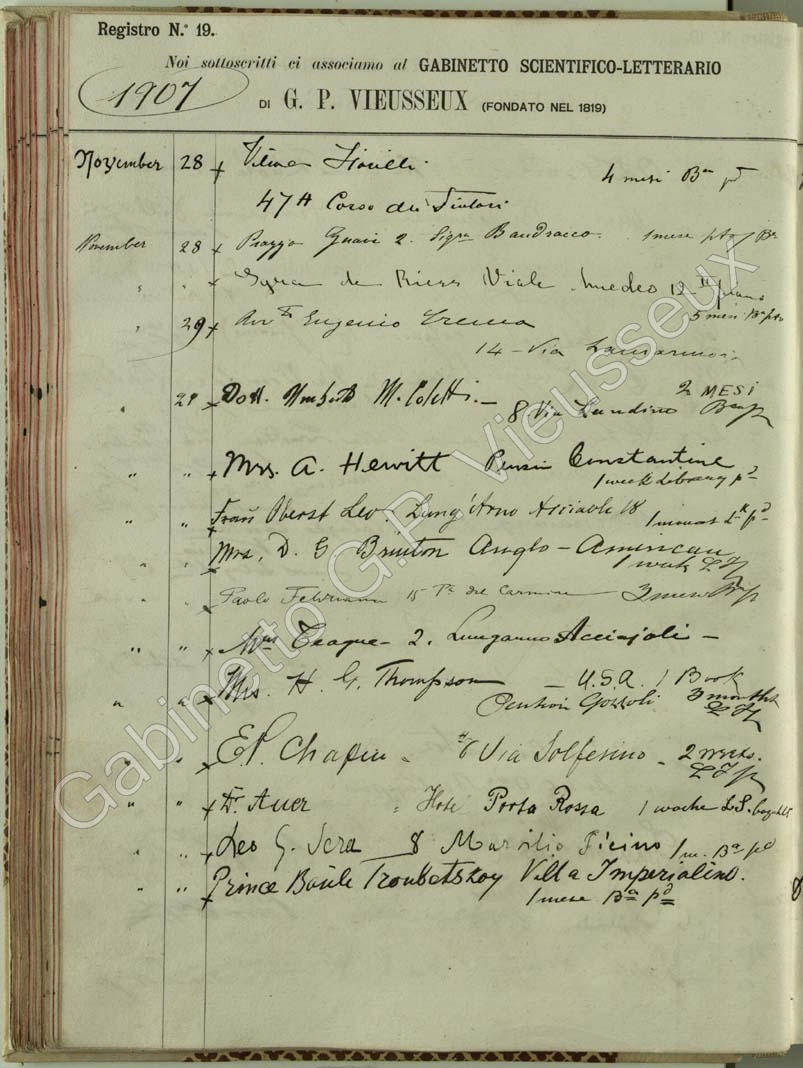 Registro N.º 19.
Noi sottoscritti ci associamo al GABINETTO SCIENTIFICO-LETTERARIO
1907
DI G. P. VIEUSSEUX (FONDATO NEL 1819)
November 28 x 4 mesi Bª pd
47A Corso dei Tintori
November 28 x Piazza 2. Sigra Bandracco. 1 mese pto Bª
" " " de Viale Amedeo 12 piano
" 29 x Avv Eugenio 5 mesi Bª pto
14 - Via
" 29 x Dott. Umberto M. Coletti. - 2 MESI
8 Via Landino
" " x Mrs. A. Hewitt Pension Constantine
1 week Library pd
" " x Frau Oberst Leo. Lung'Arno Acciaoli 18 pd
" " x Mrs. D. G Brinton Anglo-American
1 week
" " x Paolo 15 Pza del Carmine 3 mesi
" " x Mrs Teague - 2. Lungarno Acciajoli -
" " x Mrs. H. G. Thompson - U.S.A. 1 Book
Pension Gozzoli 3 months
" " x E.P. Chapin " 8 Via Solferino - 2 weeks.
" " x Dr. Auer " Hotel Porta Rossa 1 woche L.S. bezahlt
" " x Leo G. Sera 8 Marsilio Ficino 1 m. Bª pd
" " x Prince Basile Troubetskoy Villa Imperialino.
1 mese Bª pd
Gabinetto G.P. Vieusseux